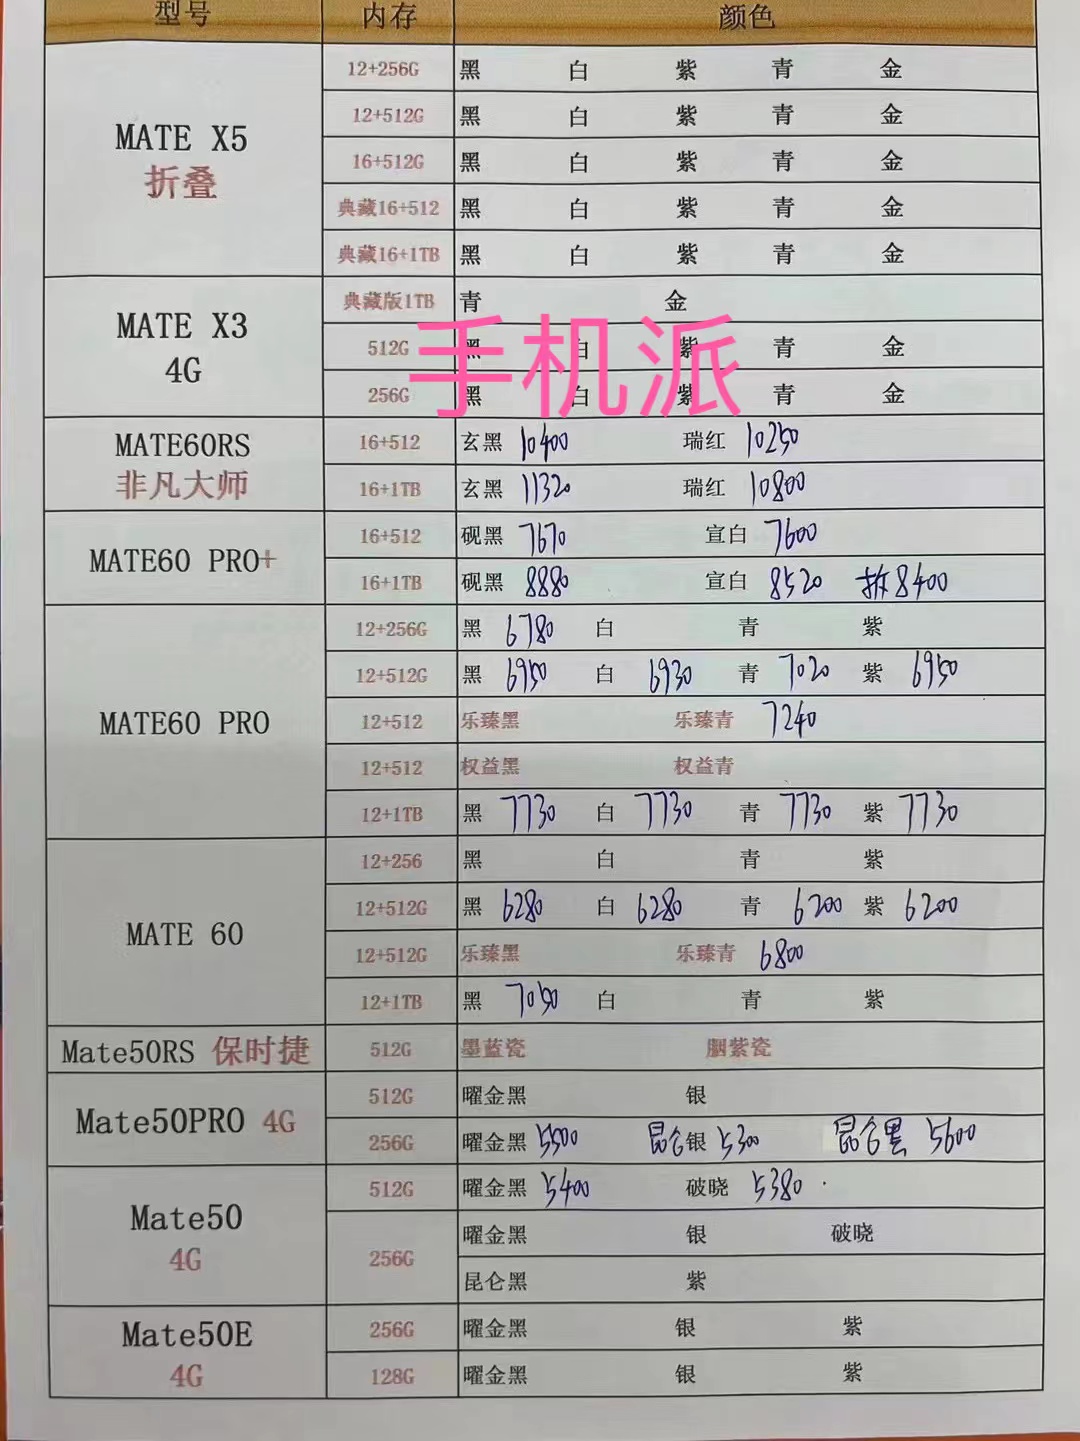 型号 内存 颜色
MATE X5 折叠
12+256G 黑 白 紫 青 金
12+512G 黑 白 紫 青 金
16+512G 黑 白 紫 青 金
典藏16+512 黑 白 紫 青 金
典藏16+1TB 黑 白 紫 青 金
MATE X3 4G
典藏版1TB 青 金
手机派
512G 黑 白 紫 青 金
256G 黑 白 紫 青 金
MATE60RS 非凡大师
16+512 玄黑 10400 瑞红 10250
16+1TB 玄黑 11320 瑞红 10800
MATE60 PRO+
16+512 砚黑 7670 宣白 7600
16+1TB 砚黑 8880 宣白 8520 拆8400
MATE60 PRO
12+256G 黑 6780 白 青 紫
12+512G 黑 6950 白 6930 青 7020 紫 6950
12+512 乐臻黑 乐臻青 7240
12+512 权益黑 权益青
12+1TB 黑 7730 白 7730 青 7730 紫 7730
MATE 60
12+256 黑 白 青 紫
12+512G 黑 6280 白 6280 青 6200 紫 6200
12+512G 乐臻黑 乐臻青 6800
12+1TB 黑 7050 白 青 紫
Mate50RS 保时捷 512G 墨蓝瓷 胭紫瓷
Mate50PRO 4G
512G 曜金黑 银
256G 曜金黑 5500 昆仑银 5300 昆仑黑 5600
Mate50 4G
512G 曜金黑 5400 破晓 5380
256G 曜金黑 银 破晓
昆仑黑 紫
Mate50E 4G
256G 曜金黑 银 紫
128G 曜金黑 银 紫